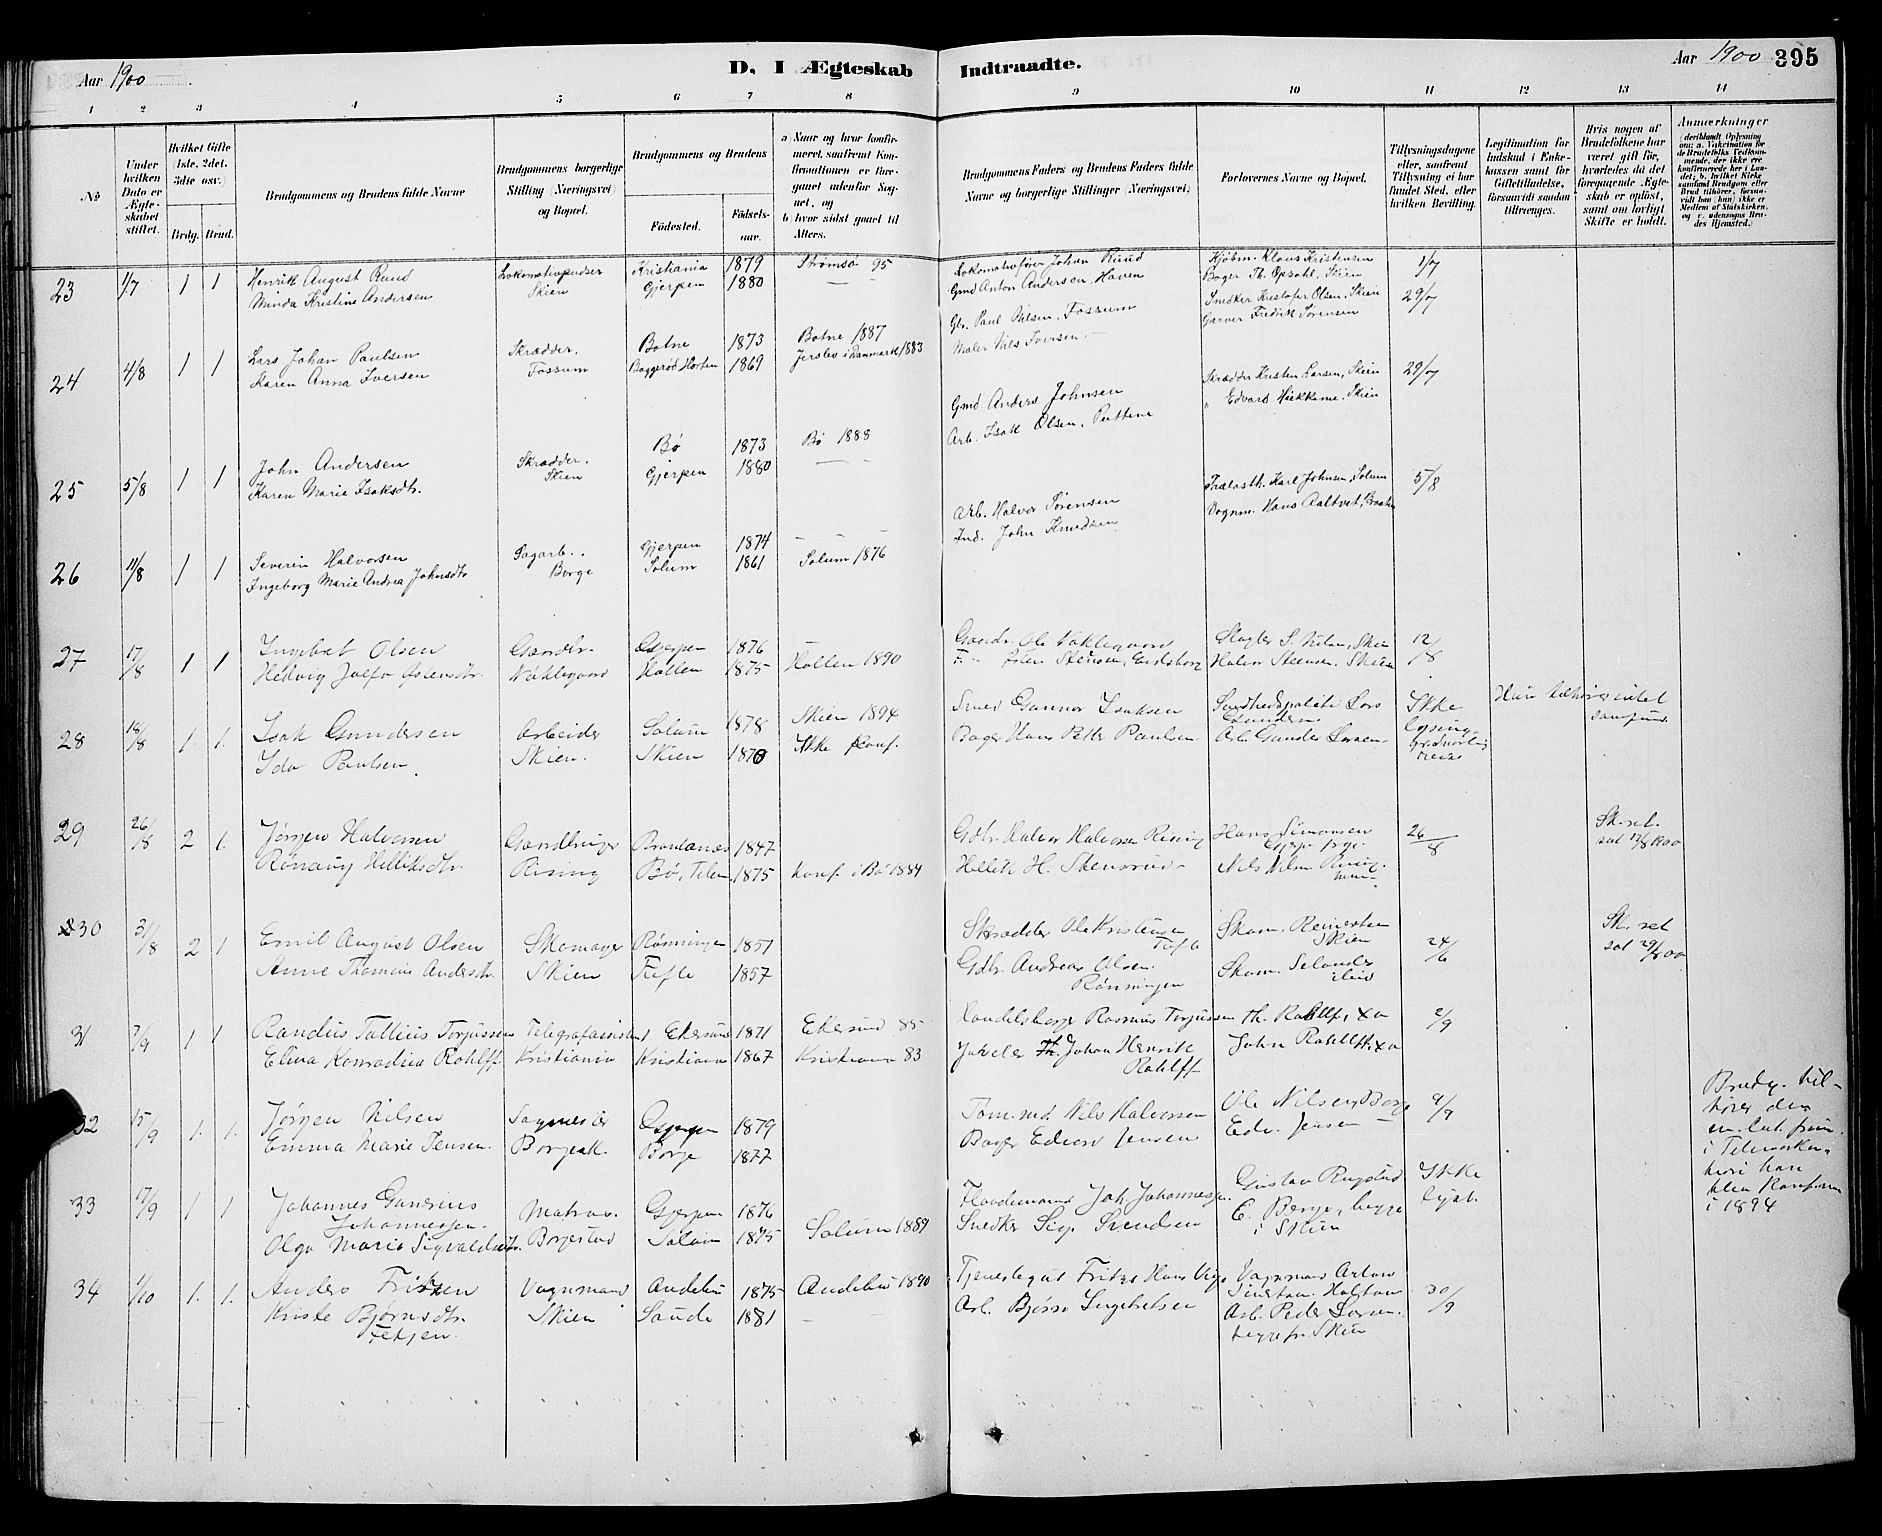 Aar 1900
D. I Ægteskab Indtraadte.
Aar 1900
395
1 2 3 4 5 6 7 8 9 10 11 12 13 14
No
Under hvilken Dato er Ægteskabet stiftet.
Hvilket Gifte (1ste, 2det, 3die osv.)
Brdg. Brud.
Brudgommens og Brudens fulde Navne
Brudgommens borgerlige Stilling (Næringsvei) og Bopæl.
Brudgommens og Brudens
Fødested.
Fødselsaar.
a) Naar og hvor konfirmeret, saafremt Konfirmationen er foregaaet udenfor Sognet, og
b) hvor sidst gaaet til Alters.
Brudgommens Faders og Brudens Faders fulde Navne og borgerlige Stillinger (Næringsvei)
Forlovernes Navne og Bopæl.
Tillysningsdagene eller, saafremt Tillysning ei har fundet Sted, efter hvilken Bevilling.
Legitimation for Indskud i Enkekassen samt for Giftetilladelse, forsaavidt saadan tiltrænges.
Hvis nogen af Brudefolkene har været gift før, hvorledes da det foregaaende Ægteskab er opløst, samt om lovligt Skifte er holdt.
Anmærkninger (deriblandt Oplysning om: a. Vakcination for de Brudefolks Vedkommende, der ikke ere konfirmerede her i Landet; b. hvilket Kirkesamfund Brudgom eller Brud tilhører, forsaavidt han (hun) ikke er Medlem af Statskirken, og c. udensogns Brudes Hjemsted.)
23 1/7 1 1 Henrik August Ruud Lokomotivpudser Kristiania 1879 Strømsø 95 Lokomotivfører Johan Ruud Kjøbm. Klaus Kristensen 1/7
Minda Kristine Andersen Skien Gjerpen 1880 — Gmd Anton Andersen, Haven Bager Th. Opsahl, Skien
24 4/8 1 1 Lars Johan Paulsen Skrædder. Botne 1873 Botne 1887 Gbr. Paul Nilsen, Fossum Snedker Kristofer Olsen, Skien 29/7
Karen Anna Iversen Fossum Baggerød Horten 1869 Jerslev i Danmark 1883 Maler Nils Iversen. Garver Fredrik Sørensen
25 5/8 1 1 John Andersen Skrædder. Bø 1873 Bø 1888 Gmd Anders Johnsen Skrædder Kristen Larsen, Skien 29/7
Karen Marie Isaksdtr. Skien Gjerpen 1880 — Arb. Isak Olsen, Puttene " Edvard Skien
26 11/8 1 1 Severin Halvorsen Sagarb. Gjerpen 1874 — Arb. Halvor Sørensen Karl Johnsen, Solum 5/8
Ingeborg Marie Andrea Johnsdtr Borge Solum 1861 Solum 1876 Ind. John Knudsen Vognm. Hans Aaltvet,
27 17/8 1 1 Ingebret Olsen Gaardbr. Gjerpen 1876 Gaardbr. Ole Nøklegaard Slagter S. Skien 12/8
Hedvig Nøklegaard Hollen 1875 Hollen 1890 Halvor Steensen, Skien
28 18/8 1. 1. Isak Gundersen Arbeider Solum 1878 Skien 1894 Gunnar Isaksen Lars Gundersen Ikke lysing
Ida Paulsen Skien. Skien 1870 Ikke konf. Bager Hans Petter Paulsen Arb. Gunder Larsen
29 26/8 2 1. Jørgen Halvorsen Gaardbruger 1847 Gdbr. Halvor Halvorsen Rising Hans Simonsen 26/8 Sk. set. dat 17/8 1900
Rønaug Helliksdtr. Rising Bø, Telem. 1875 konf. i Bø 1889 Hellik H. Stensrud Nils Nilsen Rising.
30 31/8 2 1 Emil August Olsen Skomager Rønningen 1851 Skrædder Ole Kristensen Tufte Skom. Reinertsen Skien 24/6 Sk. set dat 29/8 00
Anne Thomine Andersdtr. Skien Tufte 1857 Gdbr. Andreas Olsen. Rønningen Skom. Selander
31 7/9 1 1 Randius Tallius Torjussen Telegrafassistent Ekersund 1871 Ekersund 85 Rasmus Torjussen Th. Rohlff, Xa 2/9
Elina Konradine Rohlff. Kristiania Kristiania 1867 Kristiania 83 Juveler Th. Johan Henrik Rohlff John Rohlff, Xa
32 15/9 1. 1. Jørgen Nilsen Sagmester Gjerpen 1879 Tømmermd Nils Halvorsen Ole Nilsen, Borge 9/9
Emma Marie Jensen. Borgeak. Borge 1877 Bager Edvard Jensen Edv. Jensen —
Brudg. tilhører den ev. luth. frim. i Telemarken, hvori han blev konfirm. i 1894
33 17/9 1 1 Johannes Johannessen. Matros. Gjerpen 1876 Joh. Johannessen. Gustav Rugstad Ikke lyst.
Olga Marie Sigvaldsdtr. Borgestad Solum 1875 Solum 1889 Snedker Sigv. Svendsen E. Berge, begge i Skien
34 1/10 1. 1. Anders Fritzen Vognmand Andebu 1875 Andebu 1890 Tjenestegut Fritz Hans Vognmand Anton Holtan 30/9
Kriste Bjørnsdtr. Skien Saude 1881 — Arb. Bjørn Ingebretsen Arb. Peder Larsen. begge fr. Skien